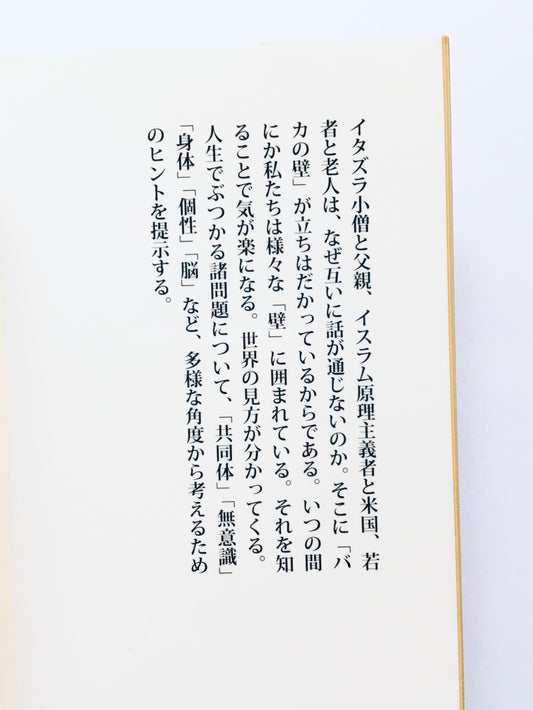 イタズラ小僧と父親、イスラム原理主義者と米国、若
者と老人は、なぜ互いに話が通じないのか。そこに「バ
カの壁」が立ちはだかっているからである。いつの間
にか私たちは様々な「壁」に囲まれている。それを知
ることで気が楽になる。世界の見方が分かってくる。
人生でぶつかる諸問題について、「共同体」「無意識」
「身体」「個性」「脳」など、多様な角度から考えるため
のヒントを提示する。